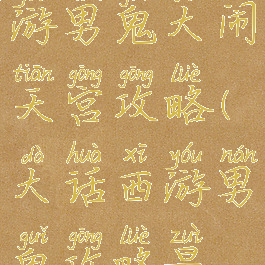 游男鬼大闹
tiān gōng gōng lüè
天宫攻略(
dà huà xī yóu nán
大话西游男
guǐ gōng lüè zuì
鬼攻略最